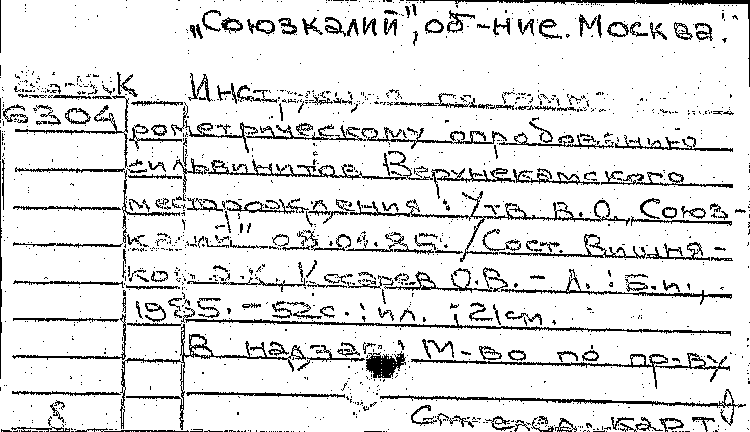 „Союзкалий", об-ние. Москва.
Инструкция по гамма-
6304
рометрическому опробованию
сильвинитов Верхнекамского
месторождения : Утв. В.О. „Союз-
калий" 03.01.85. / Сост. Вишня-
ков Э.К., Косарев О.В. – Л. : Б.и.,
1985. – 52с. : ил. ; 21см.
В надзаг.: М-во по пр-ву
8
См. след. карт.